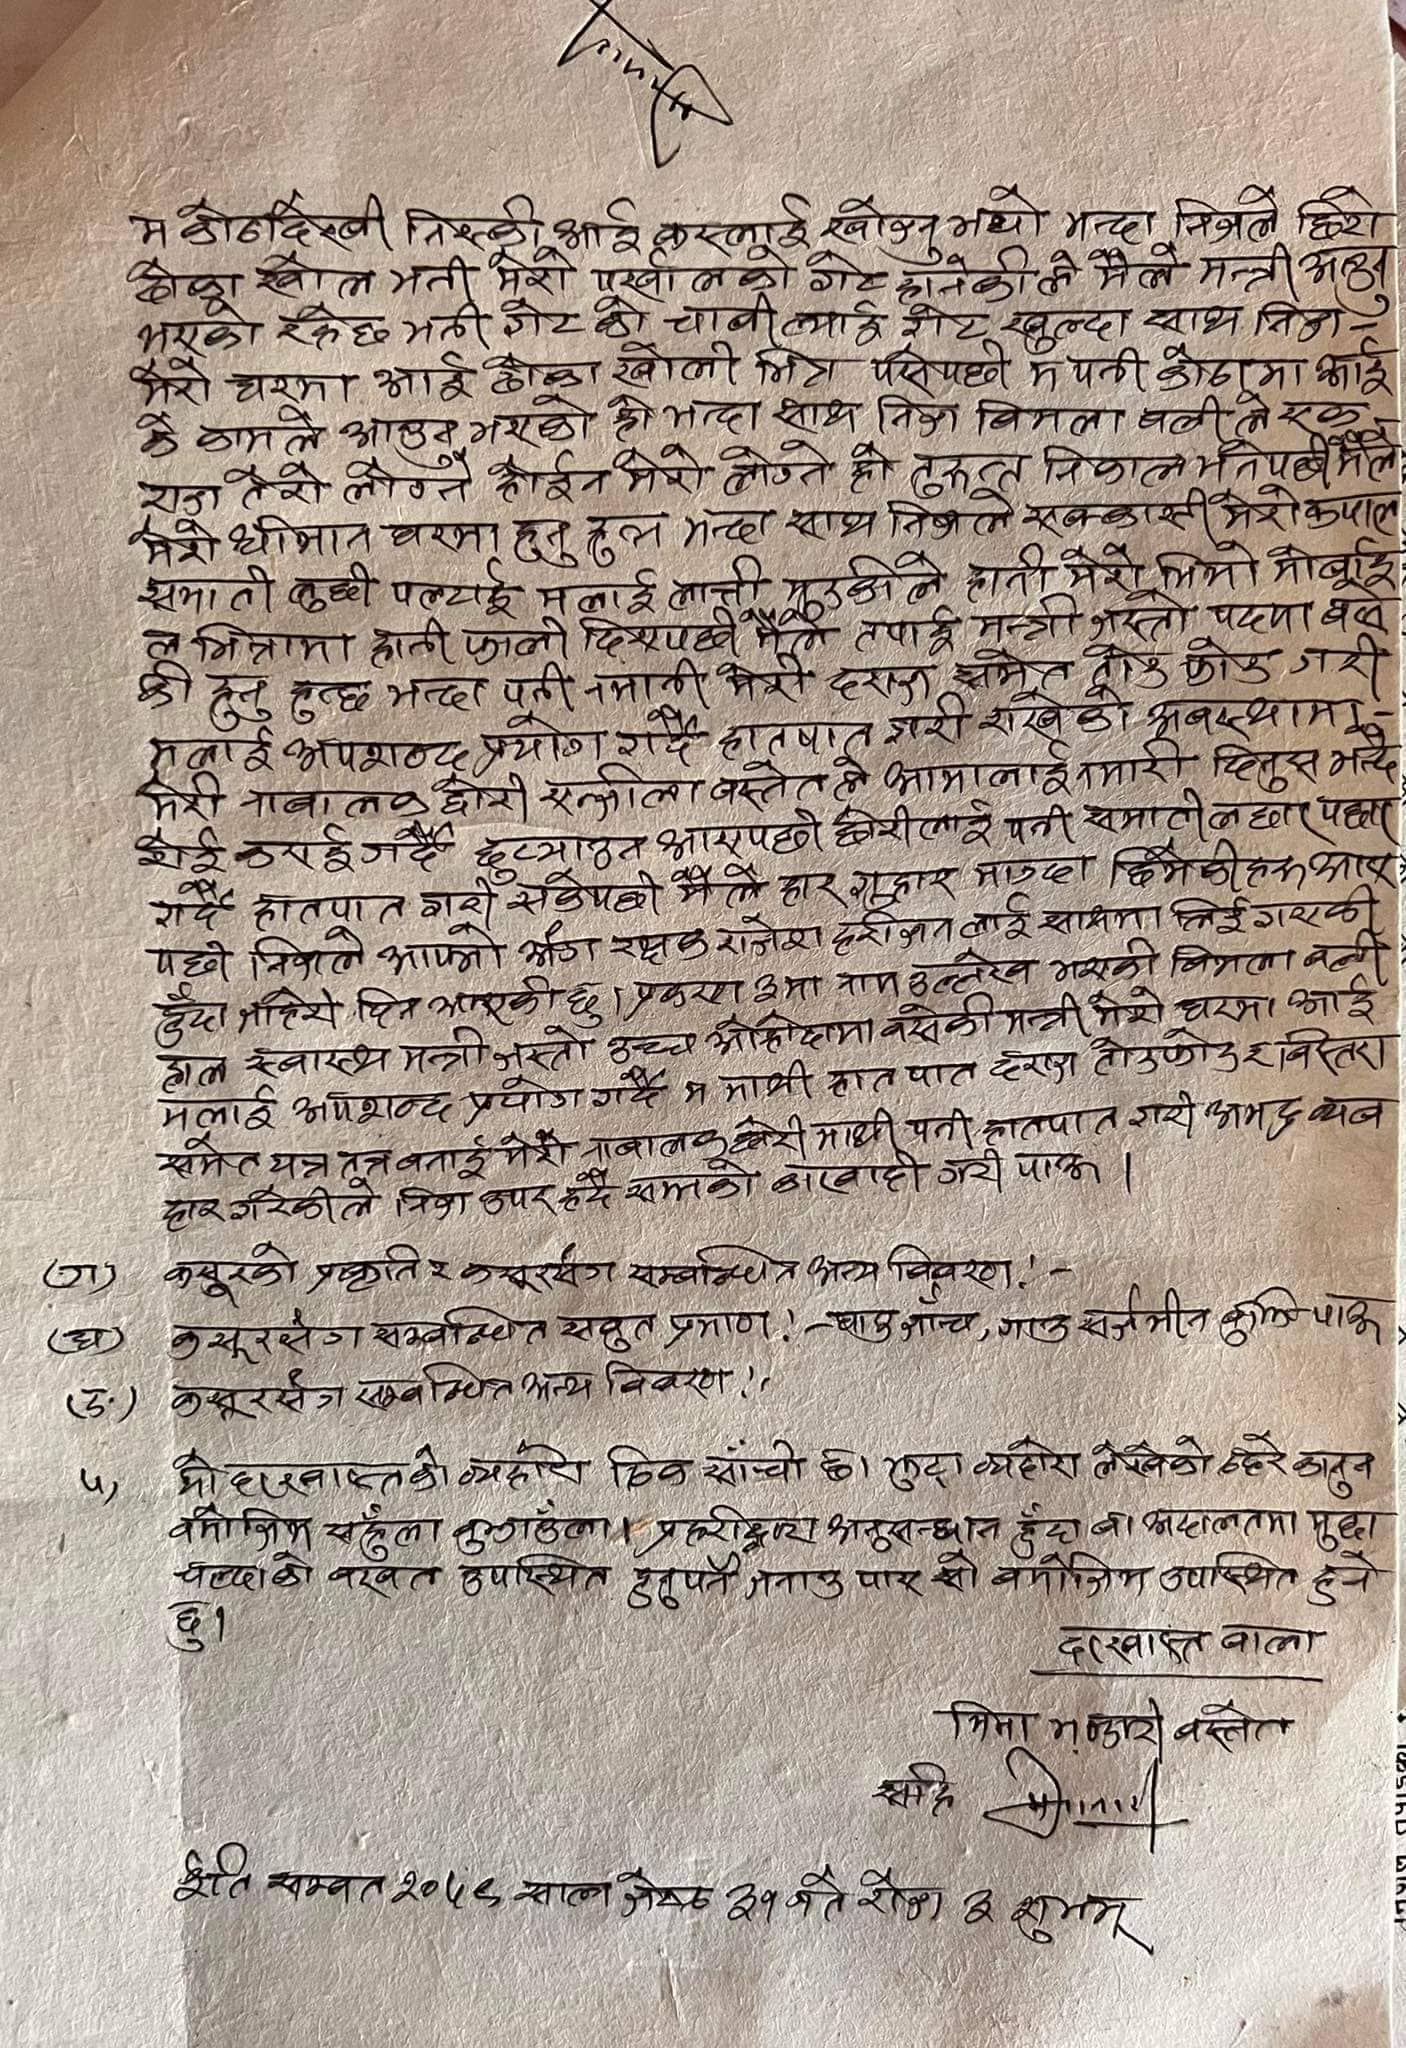 म कोठादेखी निस्की आई कस्लाई खोज्नु भयो भन्दा निजले छिरो
ढोका खोल भनी मेरो पर्खालको गेट हानेकीले मैले मन्त्री आउनु
भएको रहेछ भनी गेट को चाबी ल्याई गेट खुल्दा साथ निज-
मेरो घरमा आई ढोका खोली भित्र पसेपछी म पनी कोठामा आई
के कामले आउनु भएको हो भन्दा साथ निज बिमला वली ले एक-
राज तेरो लोग्ने होईन मेरो लोग्ने हो तुरुन्त निकाल भनेपछी मैले
मेरो श्रीमान घरमा हुनु हुन्न भन्दा साथ निजले एक्कास्सी मेरो कपाल
समाती लुछी पल्टाई मलाई लात्ती मुड्कीले हानी मेरो भिमो मोबाई
ल भित्तामा हानी फाली दिएपछी मैले तपाई मन्त्री जस्तो पदमा बसे
की हुनु हुन्छ भन्दा पनी नमानी मेरो दराज समेत तोड फोड गरी
मलाई अपशब्द प्रयोग गर्दै हातपात गरी राखेको अबस्थामा-
मेरी नाबालक छोरी एन्जीला वस्नेतले आमालाई नमारी दिनुस भन्दै
रोई कराई गर्दै छुट्याउन आएपछी छोरीलाई पनी समाती लछार पछार
गर्दै हातपात गरी सकेपछी मैले हार गुहार माग्दा छिमेकीहरू आए
पछी निजले आफ्नो अंग रक्षक राजेश हरीजन लाई साथमा लिई गएकी
हुँदा जाहेरी दिन आएकी छु। प्रकरण ३ मा नाम उल्लेख भएकी बिमला वली
हाल स्वास्थ मन्त्री जस्तो उच्च ओहोदामा बसेकी मन्त्री मेरो घरमा आई
मलाई अपशब्द प्रयोग गर्दै म माथी हात पात दराज तोडफोड र बिस्तरा
समेत यत्र तत्र बनाई मेरी नाबालक छोरी माथी पनी हातपात गरी अभद्र व्यब
हार गरेकीले निज उपर हदै सम्मको कारवाही गरी पाऊ।
(ग) कसूरको प्रकृति र कसूरसंग सम्बन्धित अन्य विवरण:-
(घ) कसूरसंग सम्बन्धित सबुत प्रमाण:- घाउ जाँच, गाउ सर्जमीन बुझि पाऊ
(ङ) कसूरसंग सम्बन्धित अन्य विवरण:-
५, यो दरखास्तको व्यहोरा ठिक साँचो छ। झुट्टा व्यहोरा लेखेको ठहरे कानुन
बमोजिम सहुँला बुझाउँला। प्रहरीद्वारा अनुसन्धान हुँदा वा अदालतमा मुद्दा
चल्दाको बखत उपस्थित हुनुपर्ने जनाउ पाए सो बमोजिम उपस्थित हुने
छु।
दरखास्त वाला
भिमा भण्डारी वस्नेत
सहि
ईति सम्वत २०७९ साल जेष्ठ ३१ गते रोज ३ शुभम्